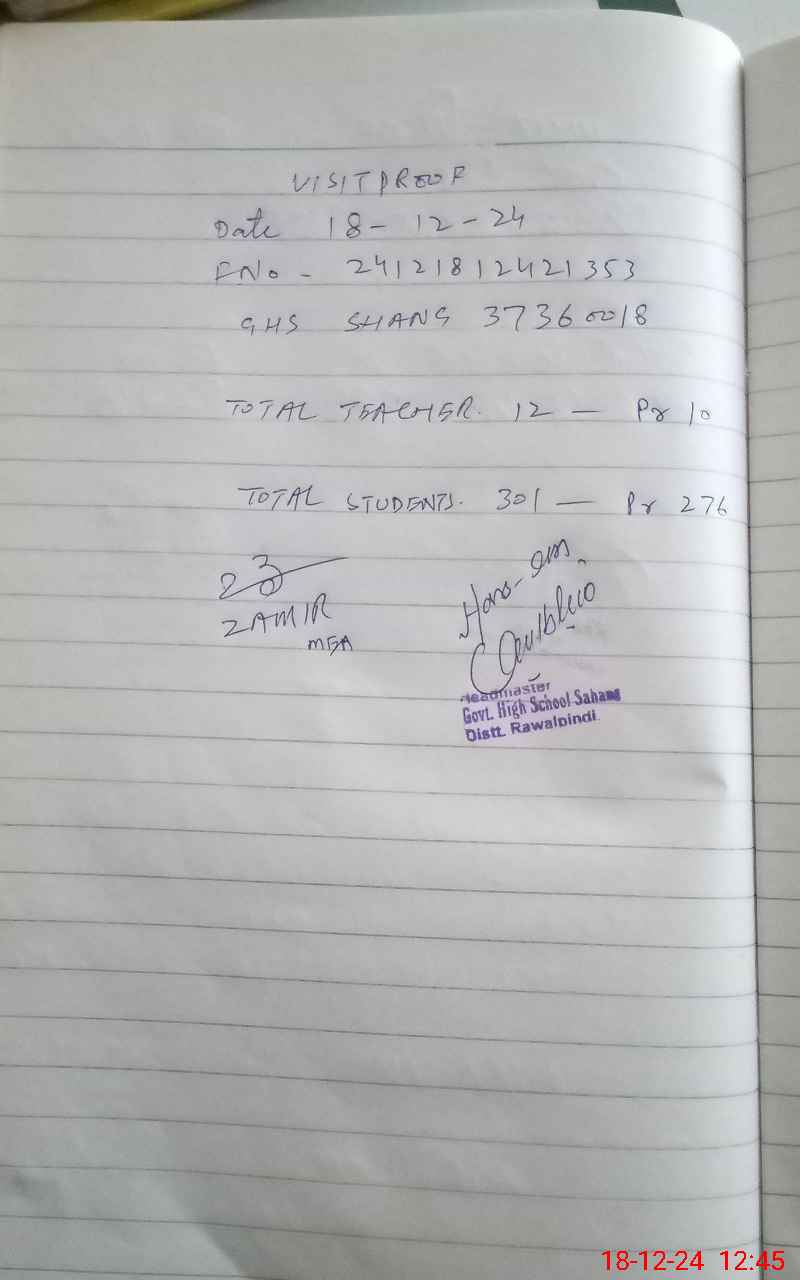 VISIT PROOF
Date 18-12-24
FNo - 24121812421353
GHS SHANG 37360018
TOTAL TEACHER. 12 — Pr 10
TOTAL STUDENTS. 301 — Pr 276
ZAMIR
MEA
Headmaster
Govt. High School Sahang
Distt. Rawalpindi.
18-12-24 12:45